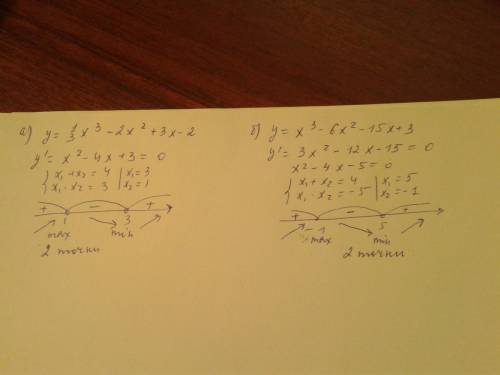 а) y = 1/3 x³ - 2x² + 3x - 2
y' = x² - 4x + 3 = 0
{ x₁ + x₂ = 4 | x₁ = 3
{ x₁ · x₂ = 3 | x₂ = 1
+ - +
1 3
max min
2 точки
б) y = x³ - 6x² - 15x + 3
y' = 3x² - 12x - 15 = 0
x² - 4x - 5 = 0
{ x₁ + x₂ = 4 | x₁ = 5
{ x₁ · x₂ = -5 | x₂ = -1
+ - +
-1 5
max min
2 точки